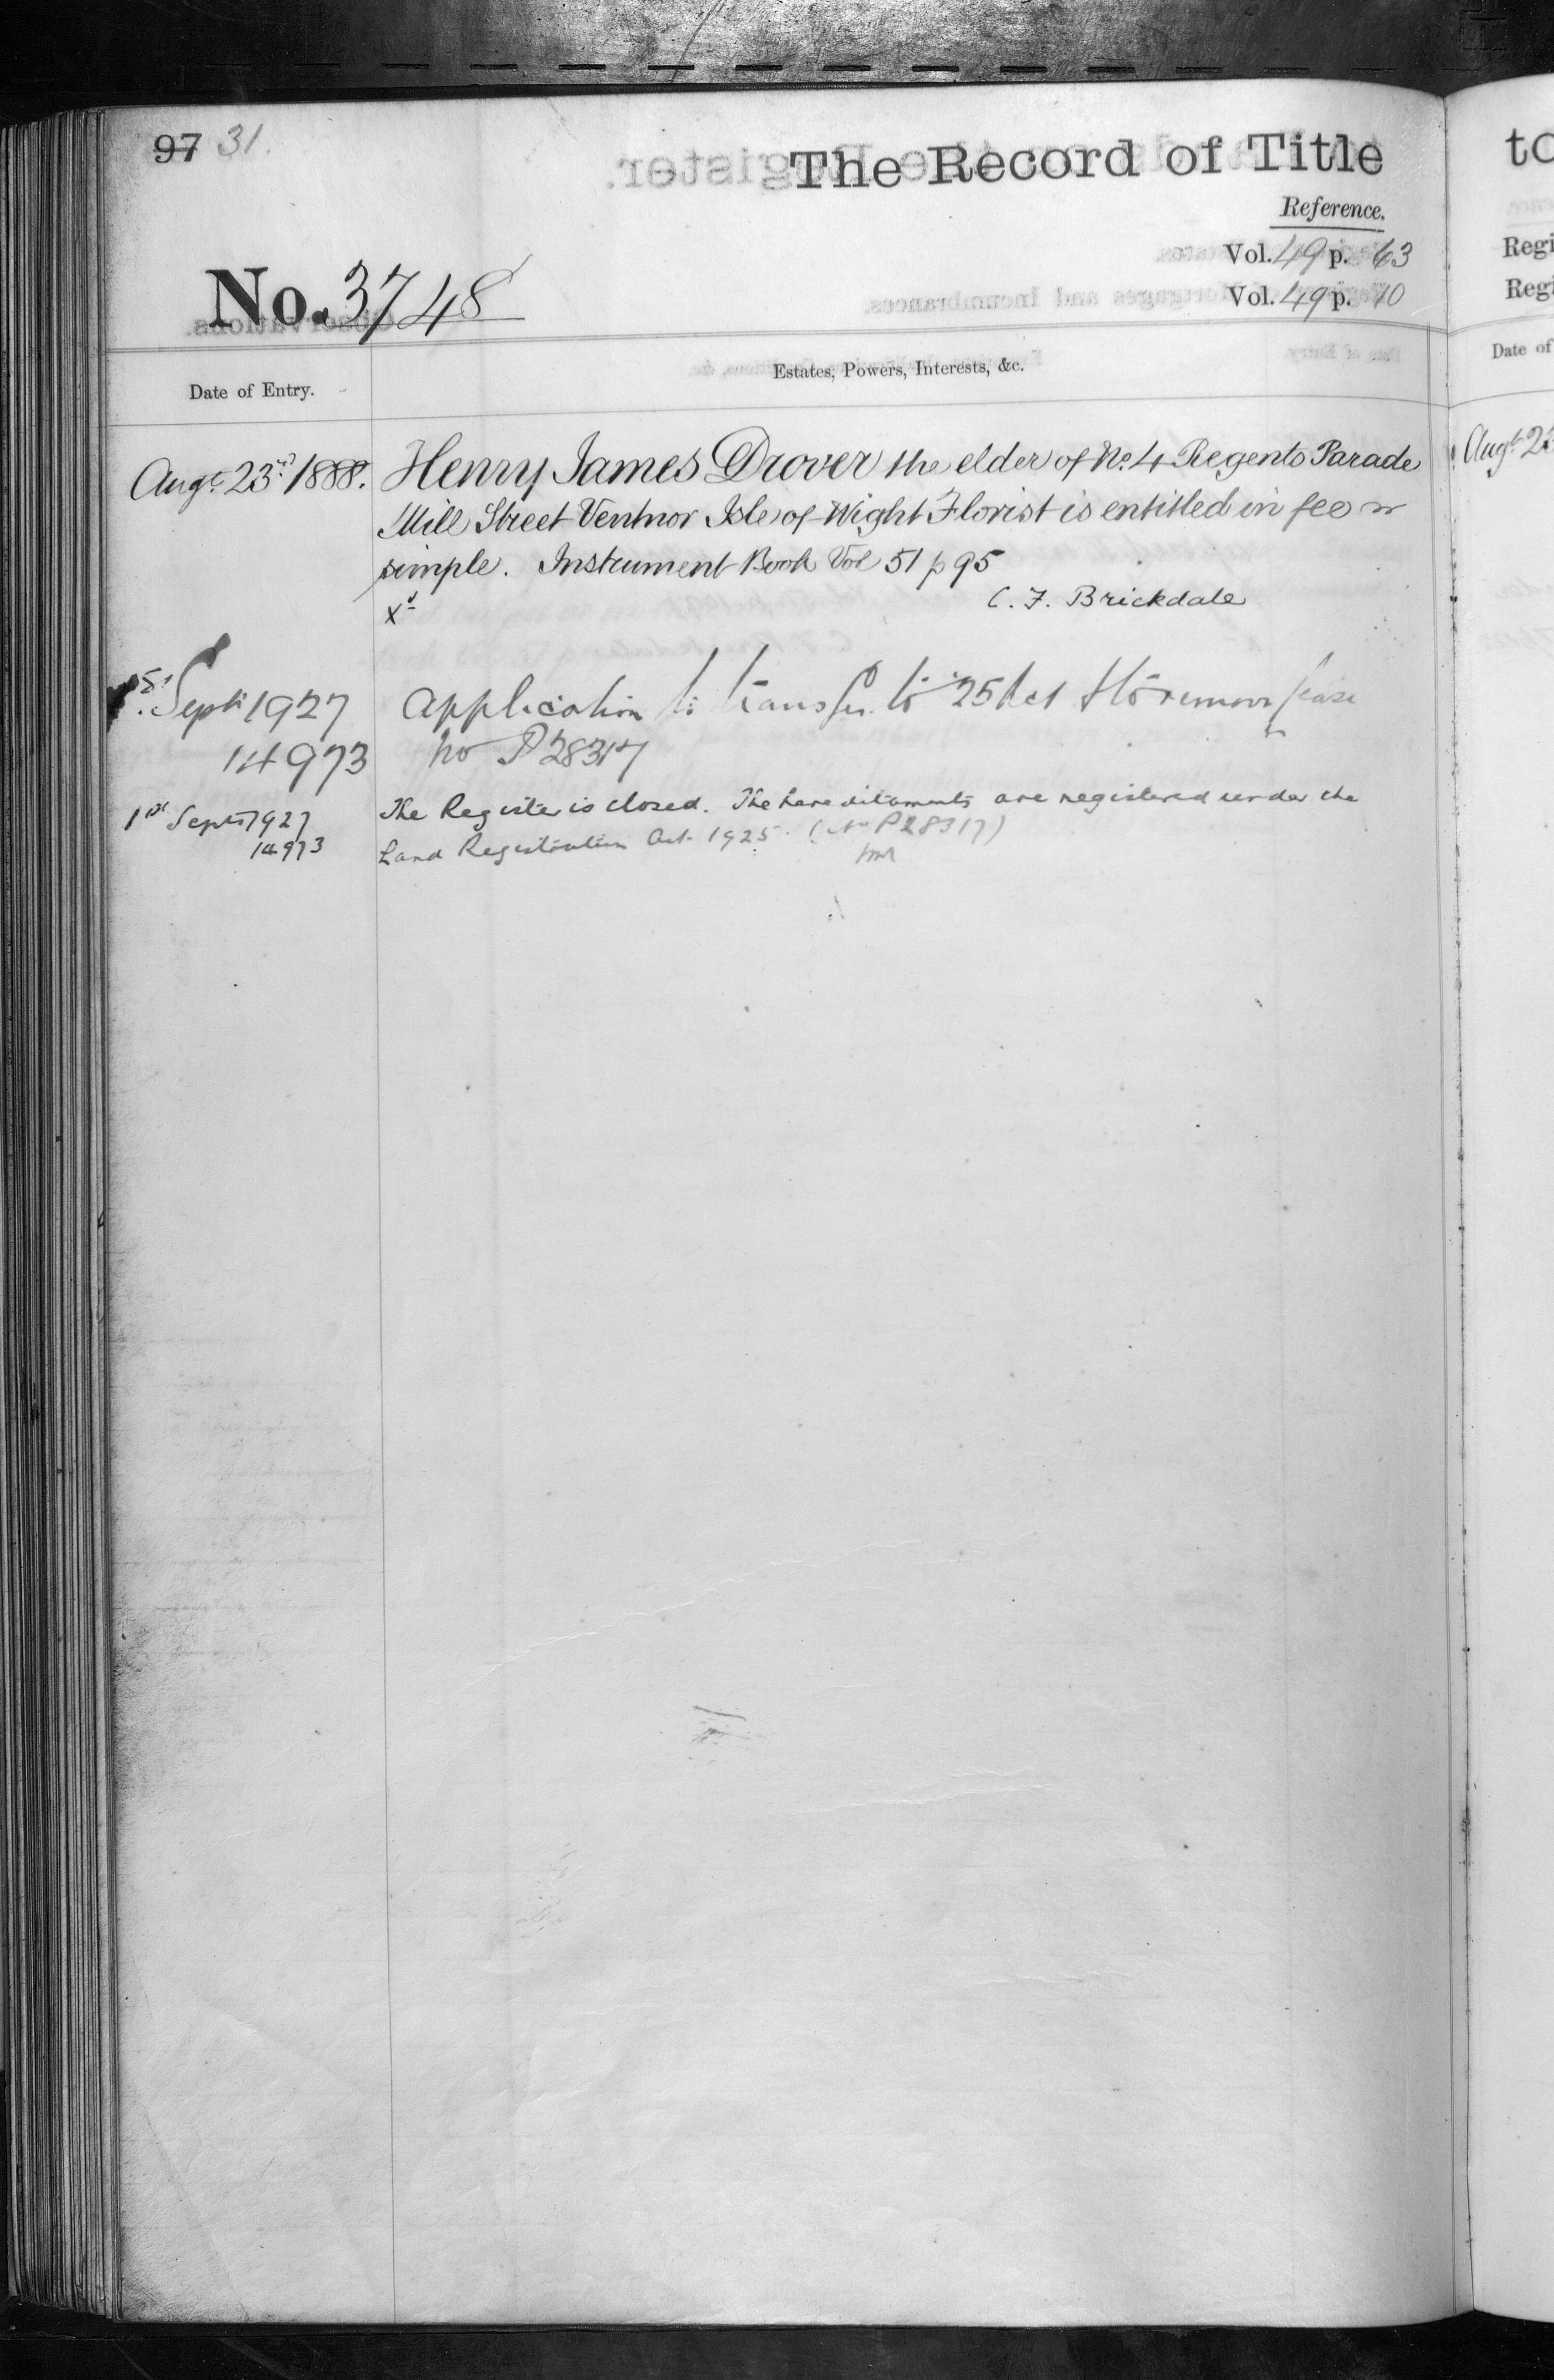 97 31.
The Record of Title
Reference.
Vol. 49 p. 63
No. 3748
Vol. 49 p. 10
Date of Entry.
Estates, Powers, Interests, &c.
Augt. 23rd 1888. Henry James Drover the elder of No. 4 Regents Parade
Mill Street Ventnor Isle of Wight Florist is entitled in fee
simple. Instrument Book Vol 51 p 95
Xd
C. F. Brickdale
Sept 1927 Application to transfer to 25 Act & to remove
14973 no P28317
1st Sept 1927 The Register is closed. The hereditaments are registered under the
14973 Land Registration Act 1925. (No P28317)
to
Regi
Regi
Date of
Augt. 23